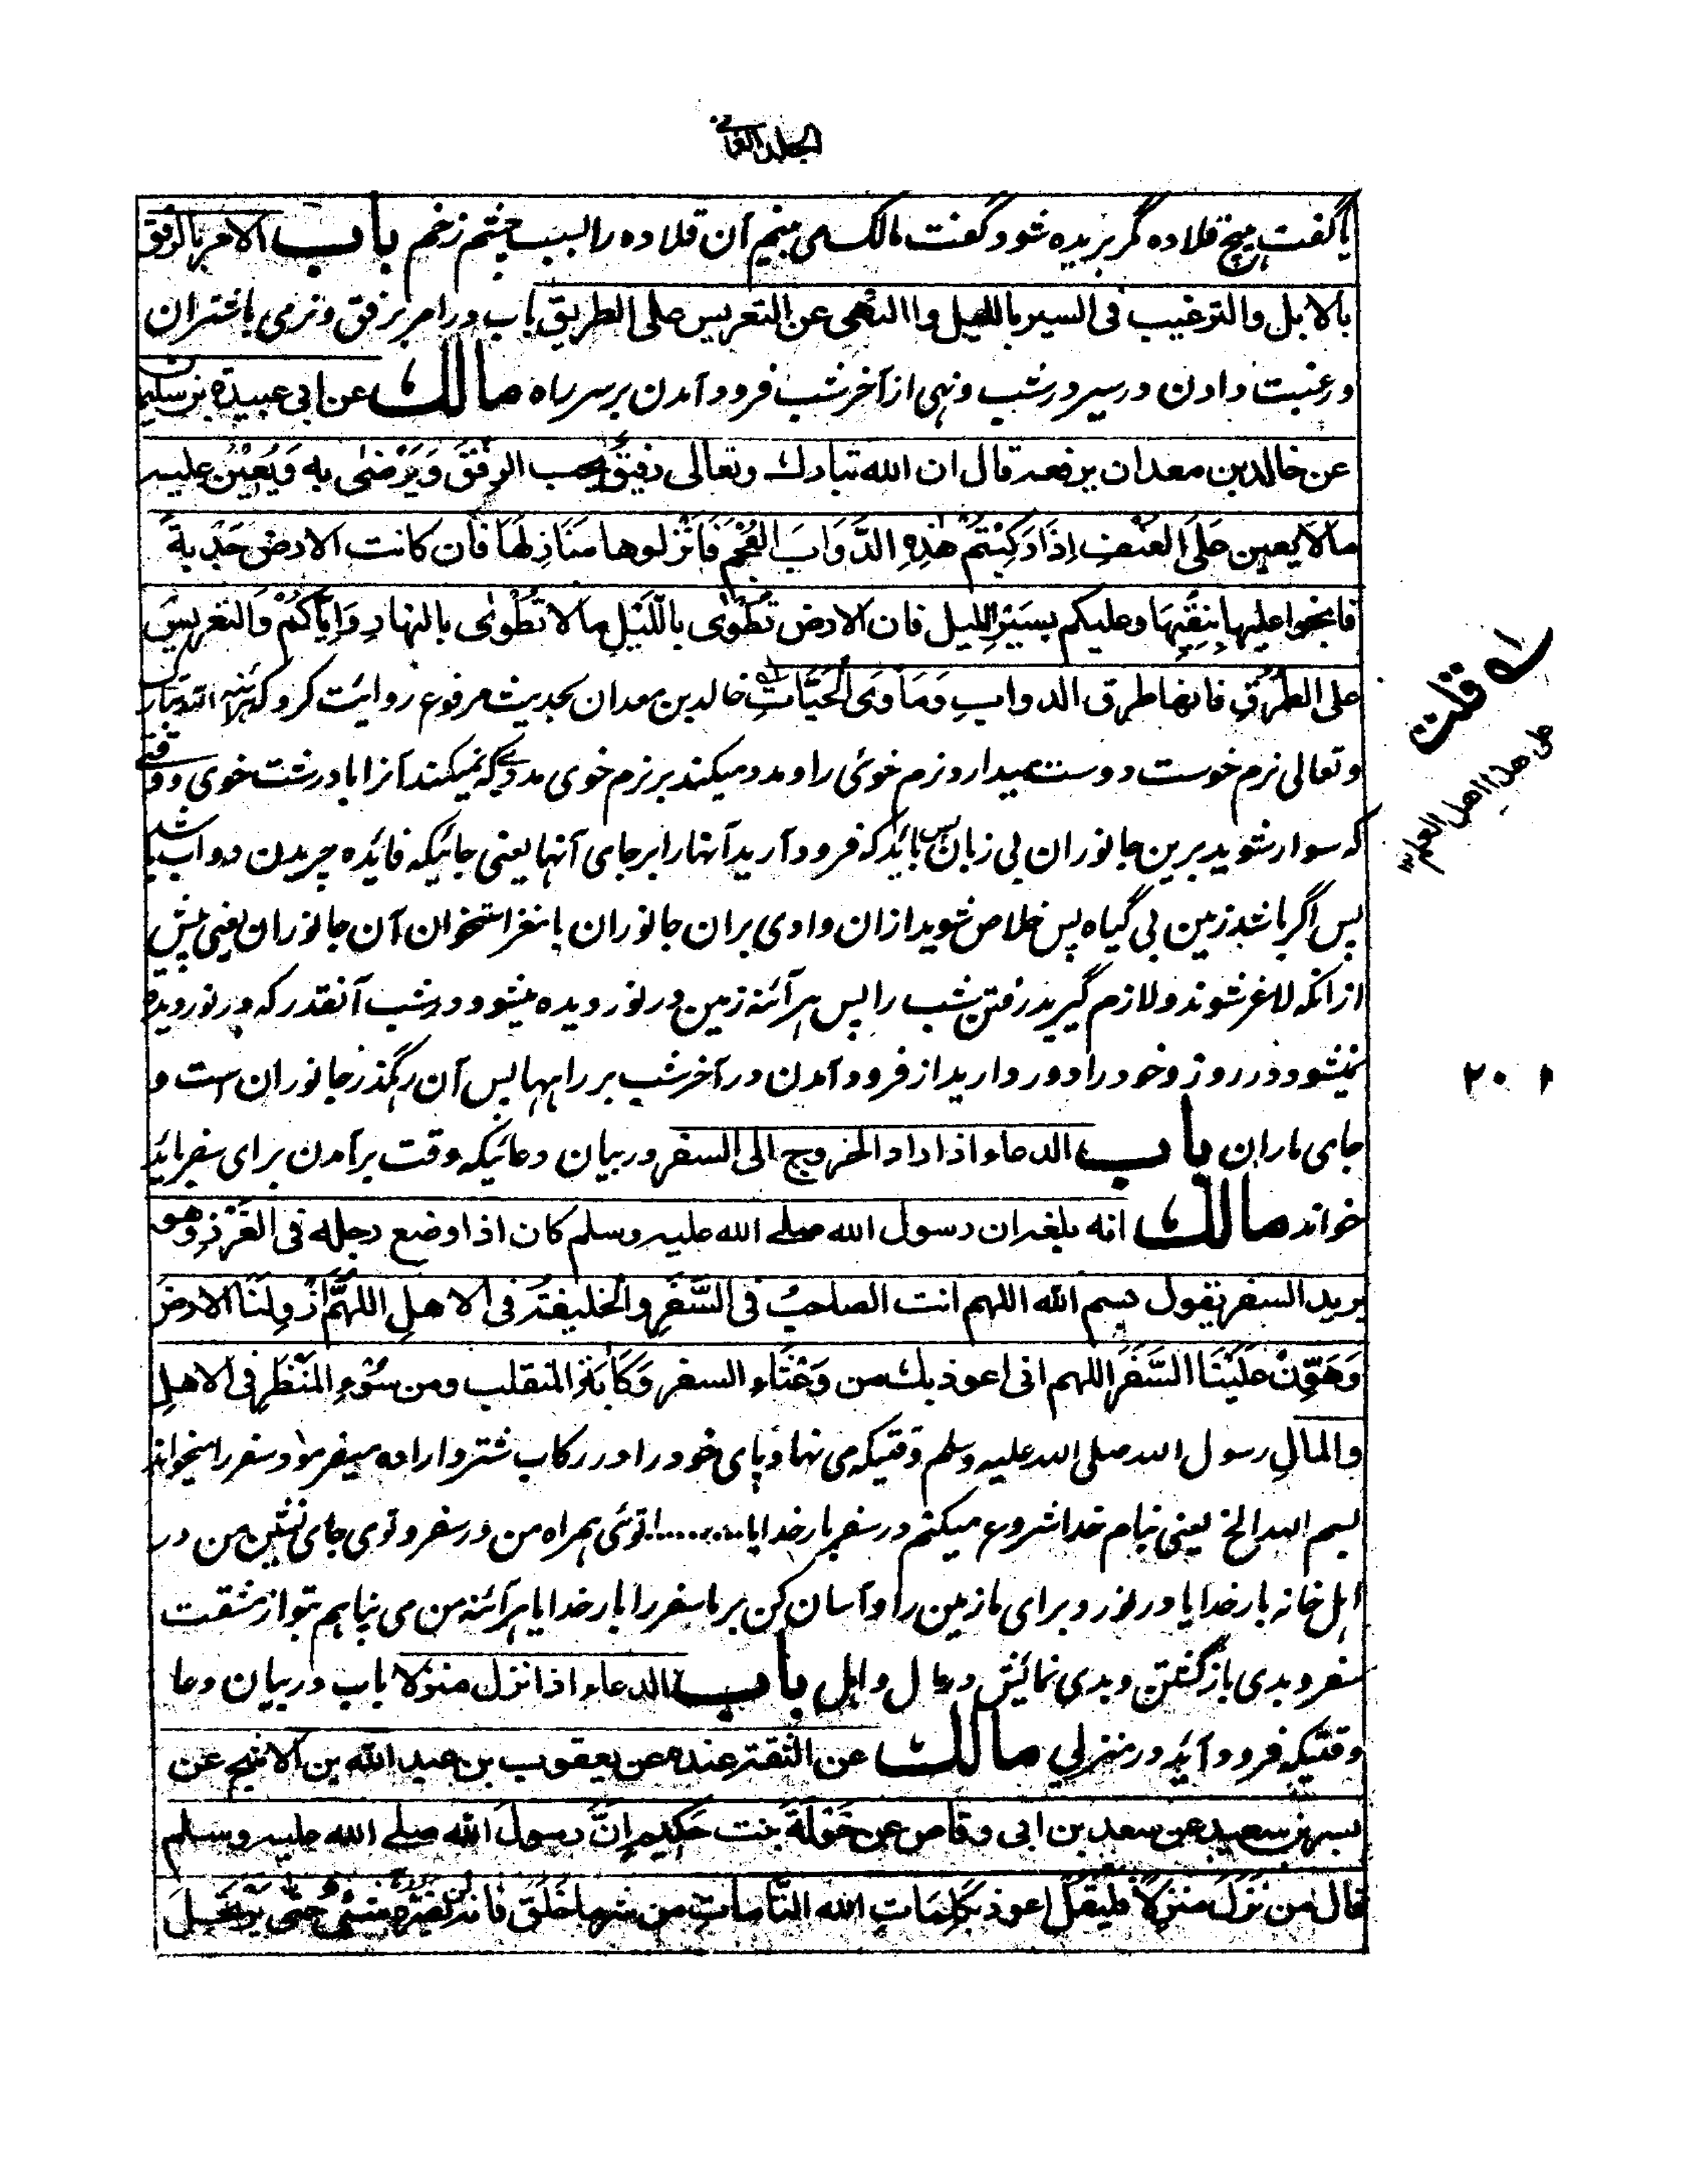 الجلد الثانى
یا گفت هیچ قلاده مگر بریده شود گفت مالک می بینم آن قلاده را بسبب چشم زخم باب الامر بالرفق
بالابل والترغیب فی السیر باللیل والنهی عن التعریس علی الطریق باب در امر برفق ونرمی با شتران
ورغبت دادن در سیر در شب ونهی از آخر شب فرود آمدن بر سر راه مالك عن ابی عبیدة بن سلیمن
عن خالد بن معدان یرفعه قال ان الله تبارك وتعالی رفیقٌ یحب الرِفقَ وَیَرْضٰی به وَیُعِیْنُ علیه
مالا یعین عَلَی العُنفِ اِذَا رَکِبْتُمْ هٰذِهِ الدَّوَابَ العُجْمَ فَاَنْزِلوها مَنَازِلَهَا فَان کانت الارض جَدْبةً
فانجوا علیها بِنِقْیِهَا وعلیکم بِسَیْرِ اللیل فان الارض تُطْوٰی بِاللَّیْلِ مالا تُطْوٰی بالنهارِ وَاِیَّاکُمْ وَالتعریسَ
علی الطُرُقِ فانها طرق الدوابِ وَمَاوَی الْحَیَّاتِ خالد بن معدان بحدیث مرفوع روایت کرد که هرآئنه الله تبارک
وتعالی نرم خوست دوست میدارد نرم خوئی را ومدد میکند بر نرم خوی مددی که نمیکند آنرا با درشت خوی وقتی
که سوار شوید برین جانوران بی زبان پس باید که فرود آرید آنها را بر جای آنها یعنی جائیکه فائده چریدن دواب باشد
پس اگر باشد زمین بی گیاه پس خلاص شوید ازان وادی بران جانوران با مغز استخوان آن جانوران یعنی پیش
ازانکه لاغر شوند ولازم گیرید رفتن شب را پس هرآئنه زمین در نوردیده میشود در شب آنقدر که در نوردیده
نمیشود در روز وخود را دور دارید از فرود آمدن در آخر شب بر راهها پس آن رهگذر جانوران ست و
جای ماران باب الدعاء اذا اراد الخروج الی السفر در بیان دعائیکه وقت برآمدن برای سفر باید
خواند مالك انه بلغه ان رسول الله صلے الله علیه وسلم کان اذا وضع رجله فی الغَرْزِ وهو
یرید السفر یقول بسم الله اللهم انت الصاحبُ فی السَّفَرِ والخلیفةُ فی الاهلِ اللهُمَّ ازْوِ لَنَا الارضَ
وَهَوِّنْ عَلَیْنَا السَّفَرَ اللهم انی اعوذ بك من وَعْثَاءِ السفر وَکَآبَةِ المنقلب ومن سُوْءِ المَنْظَرِ فی الاهلِ
والمالِ رسول الله صلی الله علیه وسلم وقتیکه می نهاد پای خود را در رکاب شتر واراده میفرمود سفر را میخواند
بسم الله الخ یعنی بنام خدا شروع میکنم در سفر بار خدایا ........! توئی همراه من در سفر وتوی جای نشین من در
اهل خانه بار خدایا در نورد برای ما زمین را وآسان کن بر ما سفر را بار خدایا هرآئنه من می پناهم بتو از مشقت
سفر وبدی بازگشتن وبدی نمایش در مال واهل باب الدعاء اذا نزل منزلا باب در بیان دعا
وقتیکه فرود آید در منزلی مالك عن الثقة عنده عن یعقوب بن عبد الله بن الاشج عن
بسر بن سعید عن سعد بن ابی وقاص عن خَوْلَةَ بنت حَکِیم اِنَّ رسولَ الله صلے الله علیه وسلم
قال من نَزَلَ منزِلاً فلیقلْ اعوذ بِکَلِمَاتِ الله التَّامات من شر ما خَلَقَ فانه لن یَضُرَّهُ شَیْءٌ حتّی یَرْتَحِلَ
له قلت
علی هذا اهل العلم ١٢
٢٠١